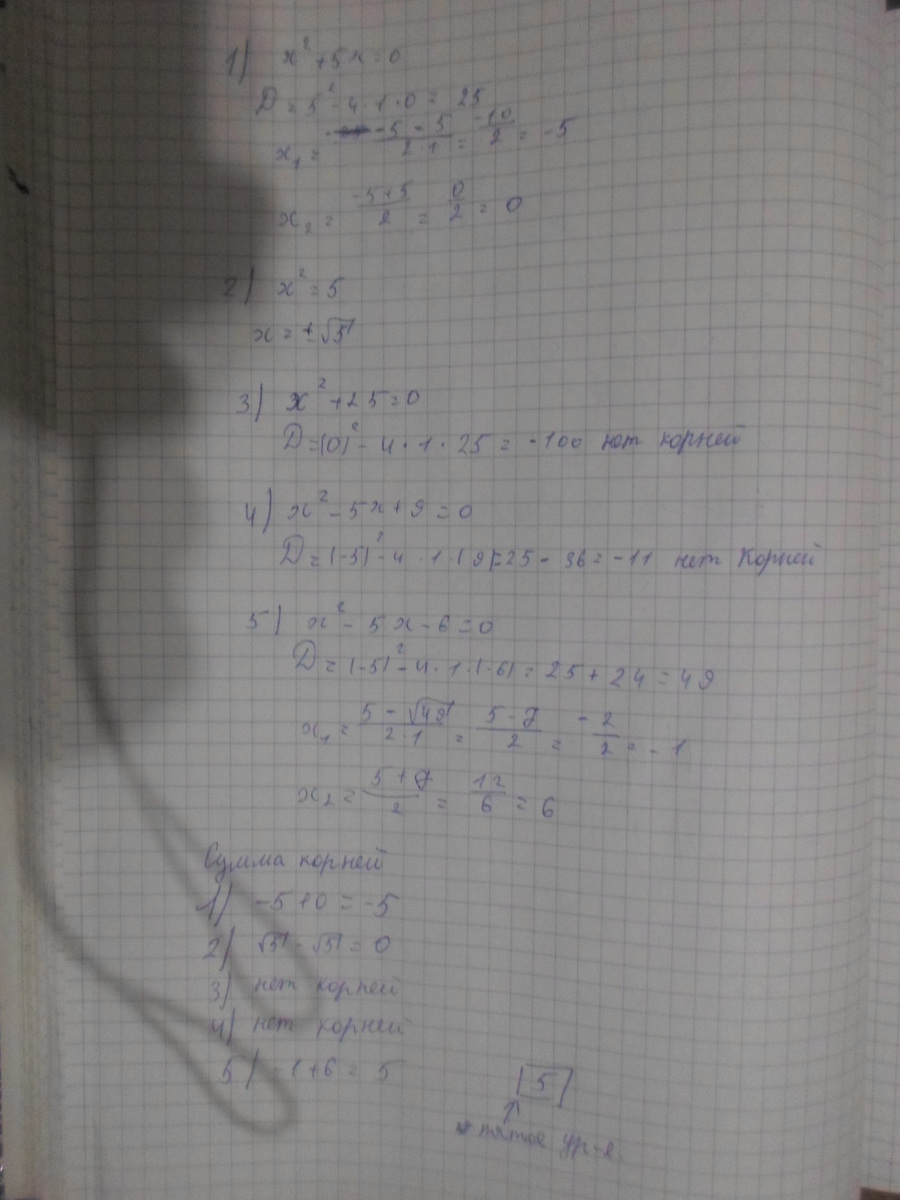 1) x² + 5x = 0
D = 5² - 4 · 1 · 0 = 25
x₁ = (-5 - 5)/(2·1) = -10/2 = -5
x₂ = (-5+5)/2 = 0/2 = 0
2) x² = 5
x = ±√5
3) x² + 25 = 0
D = (0)² - 4 · 1 · 25 = -100 нет корней
4) x² - 5x + 9 = 0
D = (-5)² - 4 · 1 · (9) = 25 - 36 = -11 нет Корней
5) x² - 5x - 6 = 0
D = (-5)² - 4 · 1 · (-6) = 25 + 24 = 49
x₁ = (5 - √49)/(2·1) = (5-7)/2 = -2/2 = -1
x₂ = (5+7)/2 = 12/6 = 6
Сумма корней
1) -5+0 = -5
2) √5 - √5 = 0
3) нет корней
4) нет корней
5) -1+6 = 5
[5]
↑
пятое ур-е